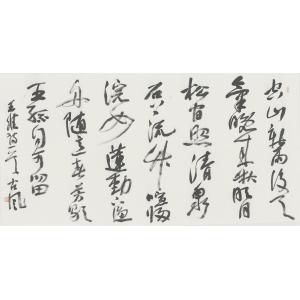 空山新雨後天
氣晚來秋明月
松間照清泉
石上流竹喧歸
浣女蓮動下漁
舟隨意春芳歇
王孫自可留
王維詩一首古風